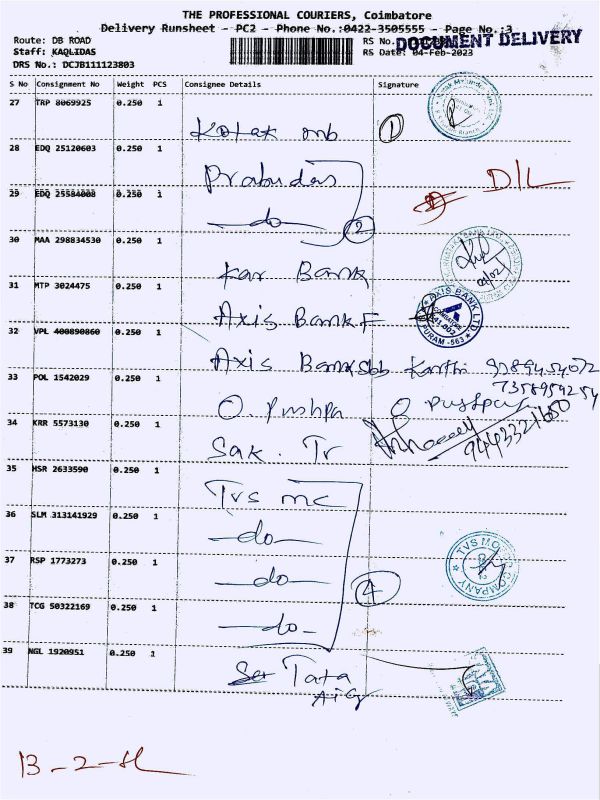 THE PROFESSIONAL COURIERS, Coimbatore
Delivery Runsheet - PC2 - Phone No.:0422-3505555 - Page No.:3
Route: DB ROAD
RS No.
DOCUMENT DELIVERY
Staff: KAQLIDAS
RS Date: 04-Feb-2023
DRS No.: DCJB111123803
S No Consignment No Weight PCS Consignee Details Signature
27 TRP 8069925 0.250 1
Kotak mb 1
28 EDQ 25120603 0.250 1
Prabudas
D/L
29 EDQ 25584008 0.250 1
-do- 2
30 MAA 298834530 0.250 1
Kar Bank
31 MTP 3024475 0.250 1
Axis Bank F
AXIS BANK LTD.
COIMBATORE
641 002
PURAM -563
32 VPL 400890860 0.250 1
Axis Bank Karthi
33 POL 1542029 0.250 1
O. Pushpa
34 KRR 5573130 0.250 1
Sak. Tr
35 HSR 2633590 0.250 1
Tvs mc
36 SLM 313141929 0.250 1
-do-
TVS MO
COMPANY
37 RSP 1773273 0.250 1
-do- 4
38 TCG 50322169 0.250 1
-do-
39 NGL 1920951 0.250 1
Tata
AiG